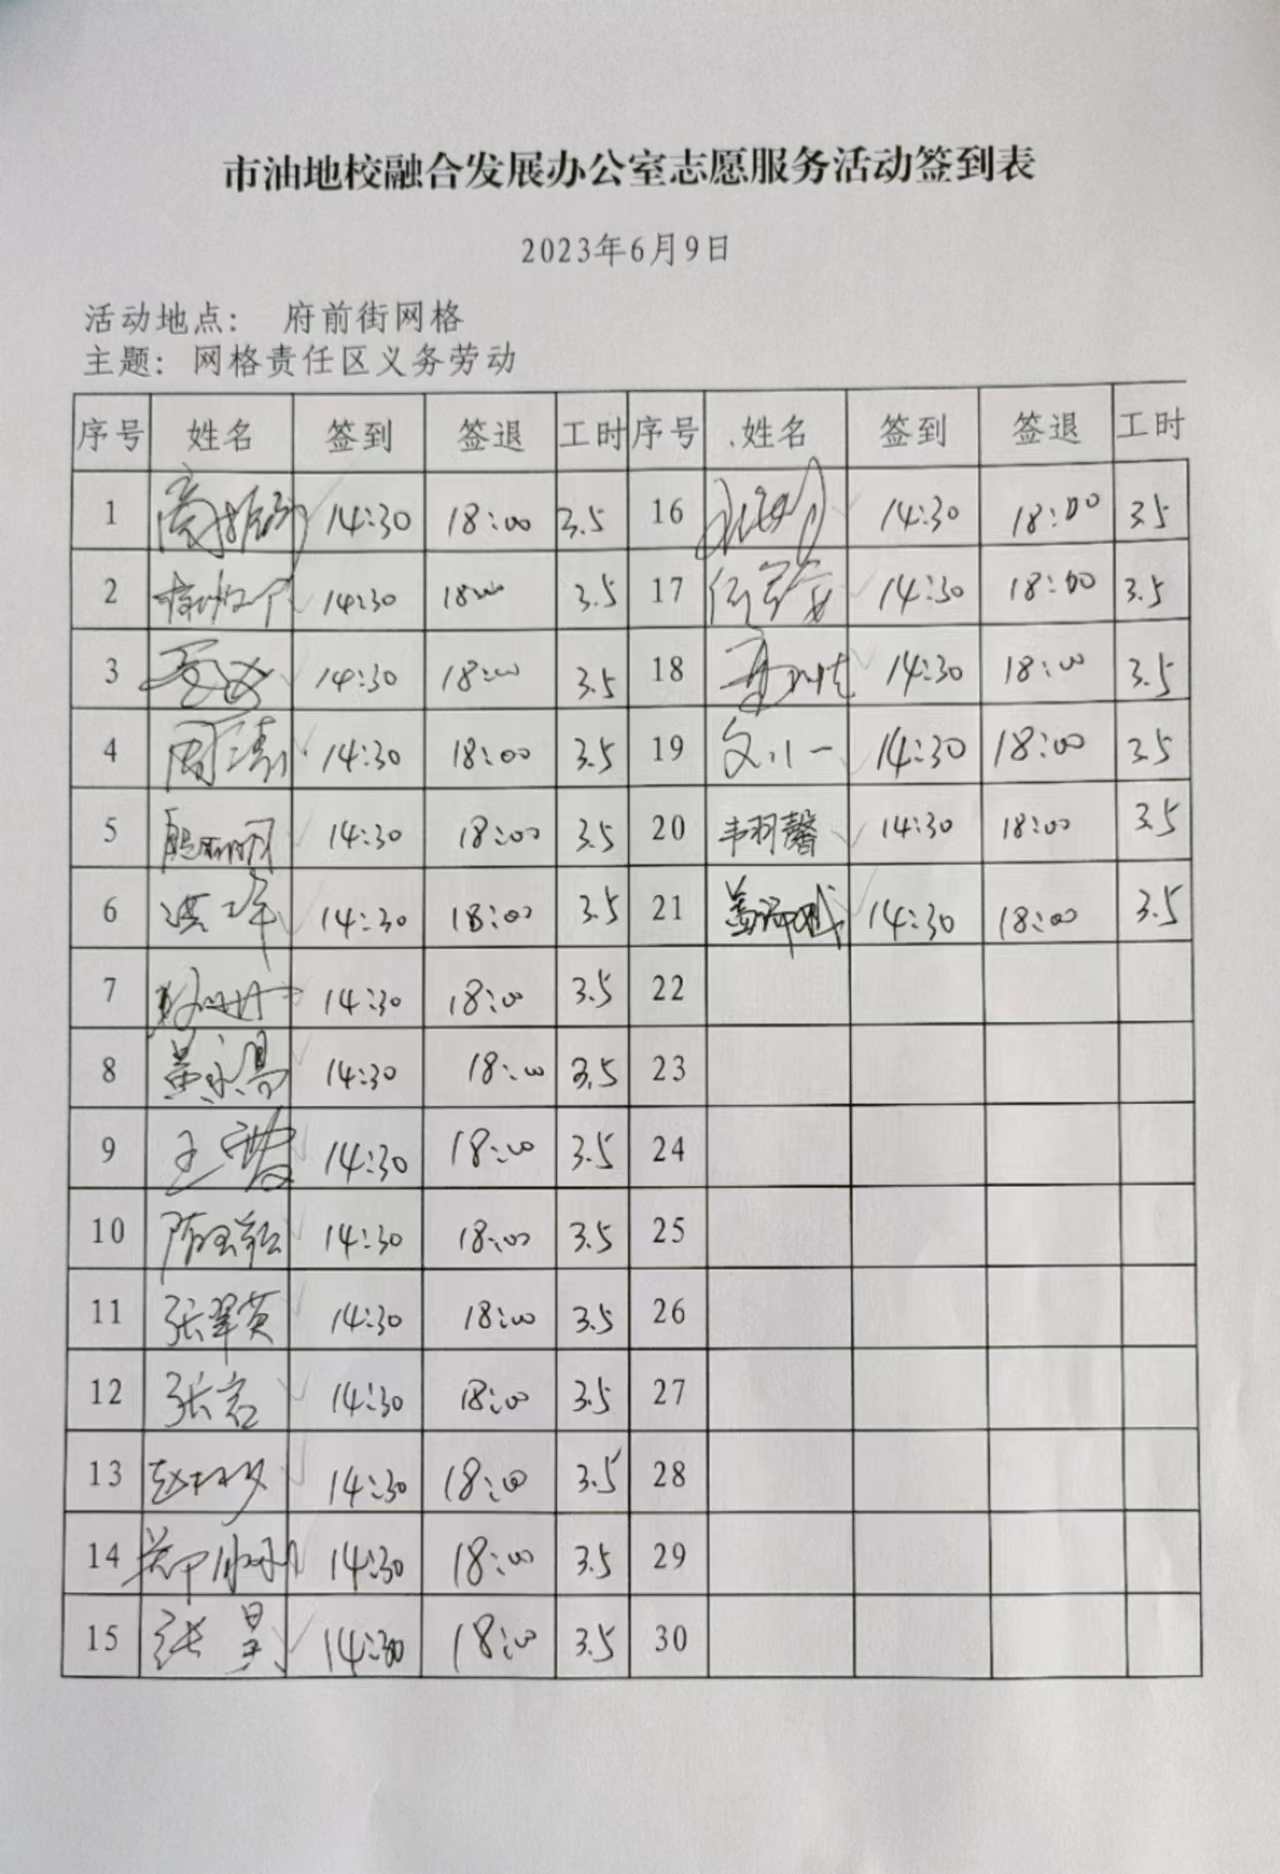 市油地校融合发展办公室志愿服务活动签到表
2023年6月9日
活动地点： 府前街网格
主题：网格责任区义务劳动
序号 姓名 签到 签退 工时 序号 姓名 签到 签退 工时
1 14:30 18:00 3.5 16 14:30 18:00 3.5
2 14:30 18:00 3.5 17 14:30 18:00 3.5
3 14:30 18:00 3.5 18 14:30 18:00 3.5
4 周涛 14:30 18:00 3.5 19 14:30 18:00 3.5
5 14:30 18:00 3.5 20 韦羽馨 14:30 18:00 3.5
6 14:30 18:00 3.5 21 14:30 18:00 3.5
7 14:30 18:00 3.5 22
8 14:30 18:00 3.5 23
9 14:30 18:00 3.5 24
10 14:30 18:00 3.5 25
11 张翠英 14:30 18:00 3.5 26
12 14:30 18:00 3.5 27
13 14:30 18:00 3.5 28
14 14:30 18:00 3.5 29
15 张昊 14:30 18:00 3.5 30